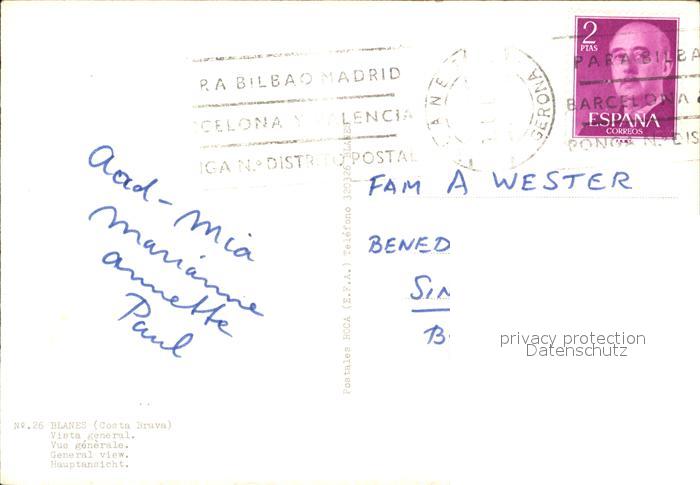 PARA BILBAO MADRID
BARCELONA Y VALENCIA
PONGA N.º DISTRITO POSTAL
BLANES
GERONA
2
PTAS
ESPAÑA
CORREOS
PARA BILBA
BARCELONA
PONGA N.º DIS
Aad - Mia
Marianne
Annette
Paul
FAM A WESTER
BENED
SIN
B
Postales ROCA (E.F.A.) Teléfono 320326 BLANES
privacy protection
Datenschutz
Nº.26 BLANES (Costa Brava)
Vista general.
Vue générale.
General view.
Hauptansicht.